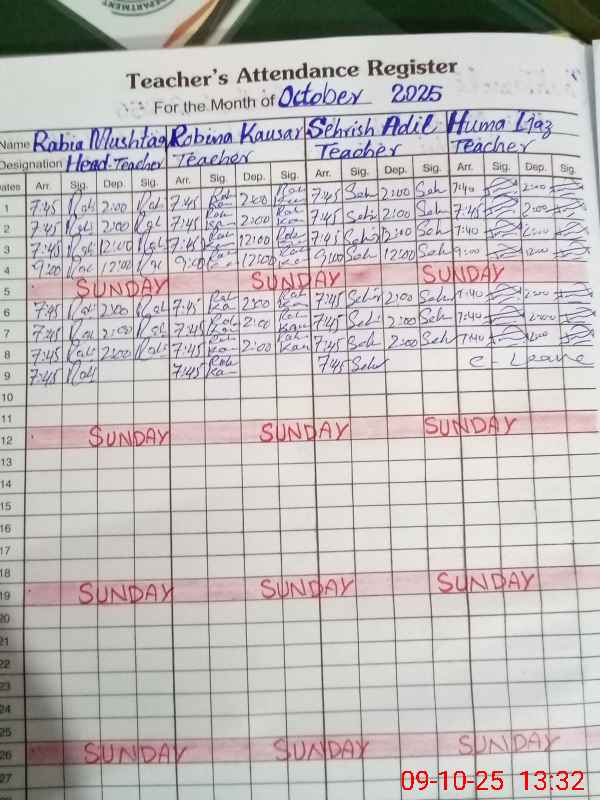 DEPARTMENT
Teacher's Attendance Register
For the Month of October 2025
Name Rabia Mushtaq Robina Kausar Sehrish Adil Huma Ijaz
Designation Head Teacher Teacher Teacher Teacher
Dates Arr. Sig. Dep. Sig. Arr. Sig. Dep. Sig. Arr. Sig. Dep. Sig. Arr. Sig. Dep. Sig.
1 7:45 Rab 2:00 Rab 7:45 2:00 7:45 Seh 2:00 Seh 7:40 2:00
2 7:45 Rab 2:00 Rab 7:45 2:00 7:45 Seh 2:00 Seh 7:45 2:00
3 7:45 Rab 12:00 Rab 7:45 12:00 7:45 Seh 2:00 Seh 7:40
4 9:00 Rab 12:00 Rab 9:00 12:00 9:00 Seh 12:00 Seh 9:00 12:00
5 SUNDAY SUNDAY SUNDAY
6 7:45 Rab 2:00 Rab 7:45 2:00 7:45 Seh 2:00 Seh 7:40 2:00
7 7:45 Rab 2:00 Rab 7:45 2:00 7:45 Seh 2:00 Seh 7:40 2:00
8 7:45 Rab 2:00 Rab 7:45 2:00 7:45 Seh 2:00 Seh 7:40 2:00
9 7:45 Rab 7:45 7:45 Seh C-Leave
10
11
12 SUNDAY SUNDAY SUNDAY
13
14
15
16
17
18
19 SUNDAY SUNDAY SUNDAY
20
21
22
23
24
25
26 SUNDAY SUNDAY SUNDAY
27
09-10-25 13:32